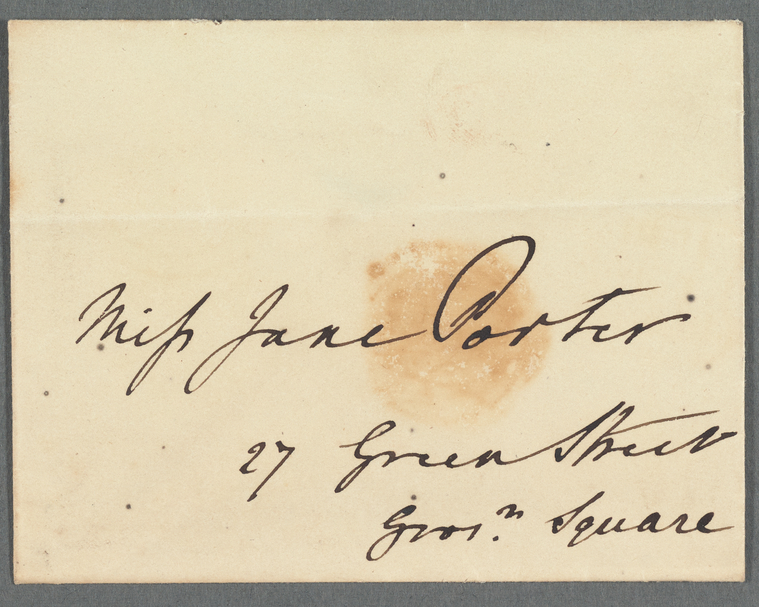 Miss Jane Porter
27 Green Street
Grosr. Square